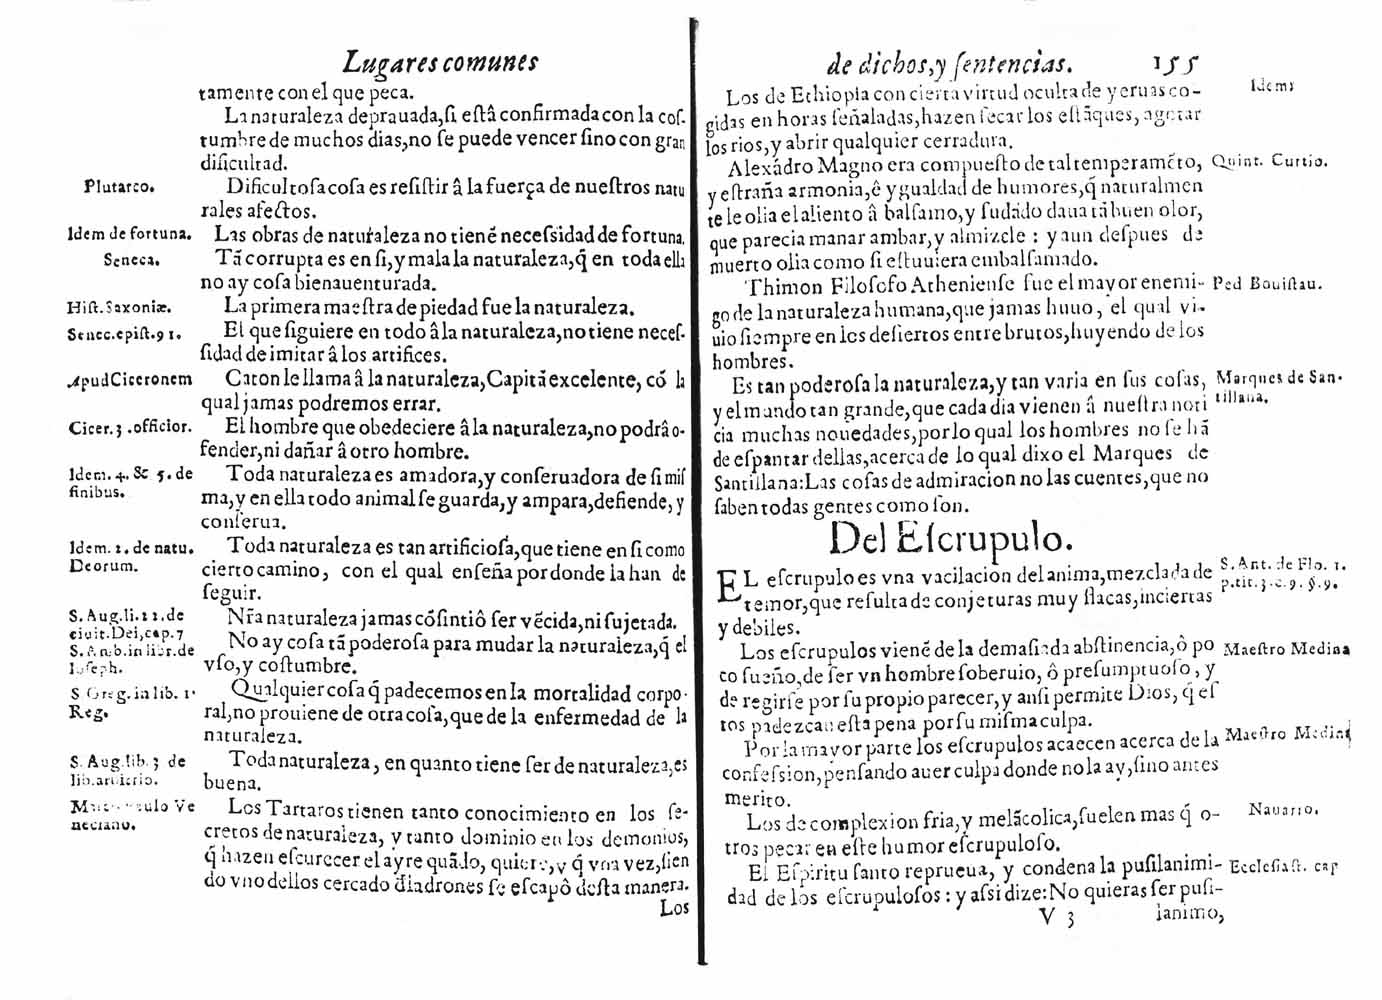 Lugares comunes
tamente con el que peca.
La naturaleza deprauada, ſi eſtâ confirmada con la coſ-
tumbre de muchos dias, no ſe puede vencer ſino con gran
dificultad.
Plutarco.
Dificultoſa coſa es reſiſtir â la fuerça de nueſtros natu
rales afectos.
Idem de fortuna.
Las obras de naturaleza no tienẽ neceſsidad de fortuna.
Seneca.
Tã corrupta es en ſi, y mala la naturaleza, q̃ en toda ella
no ay coſa bienauenturada.
Hiſt. Saxoniæ.
La primera maeſtra de piedad fue la naturaleza.
Senec. epiſt. 91.
El que ſiguiere en todo â la naturaleza, no tiene neceſ-
ſidad de imitar â los artifices.
Apud Ciceronem
Caton le llama â la naturaleza, Capitã excelente, cõ la
qual jamas podremos errar.
Cicer. 3. officior.
El hombre que obedeciere â la naturaleza, no podrâ o-
fender, ni dañar â otro hombre.
Idem. 4. & 5. de
finibus.
Toda naturaleza es amadora, y conſeruadora de ſi miſ
ma, y en ella todo animal ſe guarda, y ampara, defiende, y
conſerua.
Idem. 2. de natu.
Deorum.
Toda naturaleza es tan artificioſa, que tiene en ſi como
cierto camino, con el qual enſeña por donde la han de
ſeguir.
S. Aug. li. 22. de
ciuit. Dei, cap. 7
Nr̃a naturaleza jamas cõſintiô ſer vẽcida, ni ſujetada.
S. Amb. in libr. de
Ioſeph.
No ay coſa tã poderoſa para mudar la naturaleza, q̃ el
vſo, y coſtumbre.
S Greg. in lib. 1.
Reg.
Qualquier coſa q̃ padecemos en la mortalidad corpo-
ral, no prouiene de otra coſa, que de la enfermedad de la
naturaleza.
S. Aug. lib. 3 de
lib. arbitrio.
Toda naturaleza, en quanto tiene ſer de naturaleza, es
buena.
Ve
neciano.
Los Tartaros tienen tanto conocimiento en los ſe-
cretos de naturaleza, y tanto dominio en los demonios,
q̃ hazen eſcurecer el ayre quãdo, quierẽ, y q̃ vna vez, ſien
do vno dellos cercado d̃ ladrones ſe eſcapô deſta manera.
Los
de dichos, y ſentencias. 155
Los de Ethiopia con cierta virtud oculta de yeruas co-
gidas en horas ſeñaladas, hazen ſecar los eſtãques, agotar
los rios, y abrir qualquier cerradura.
Idem.
Alexãdro Magno era compueſto de tal temperamẽto,
y eſtraña armonia, ê ygualdad de humores, q̃ naturalmen
te le olia el aliento â balſamo, y ſudãdo daua tã buen olor,
que parecia manar ambar, y almizcle : y aun deſpues de
muerto olia como ſi eſtuuiera embalſamado.
Quint. Curtio.
Thimon Filoſofo Athenienſe fue el mayor enemi-
go de la naturaleza humana, que jamas huuo, el qual vi-
uio ſiempre en los deſiertos entre brutos, huyendo de los
hombres.
Ped Bouiſtau.
Es tan poderoſa la naturaleza, y tan varia en ſus coſas,
y el mundo tan grande, que cada dia vienen â nueſtra noti
cia muchas nouedades, por lo qual los hombres no ſe hã
de eſpantar dellas, acerca de lo qual dixo el Marques de
Santillana: Las coſas de admiracion no las cuentes, que no
ſaben todas gentes como ſon.
Marques de San-
tillana.
Del Eſcrupulo.
EL eſcrupulo es vna vacilacion del anima, mezclada de
temor, que reſulta de conjeturas muy flacas, inciertas
y debiles.
S. Ant. de Flo. 1.
p. tit. 3. c. 9. §. 9.
Los eſcrupulos vienẽ de la demaſiada abſtinencia, ô po
co ſueño, de ſer vn hombre ſoberuio, ô preſumptuoſo, y
de regirſe por ſu propio parecer, y anſi permite Dios, q̃ eſ
tos padezcan eſta pena por ſu miſma culpa.
Maeſtro Medina
Por la mayor parte los eſcrupulos acaecen acerca de la
confeſsion, penſando auer culpa donde no la ay, ſino antes
merito.
Maeſtro Medina
Los de complexion fria, y melãcolica, ſuelen mas q̃ o-
tros pecar en eſte humor eſcrupuloſo.
Nauarro.
El Eſpiritu ſanto reprueua, y condena la puſilanimi-
dad de los eſcrupuloſos : y aſsi dize: No quieras ſer puſi-
Eccleſiaſt. cap
V 3
lanimo,